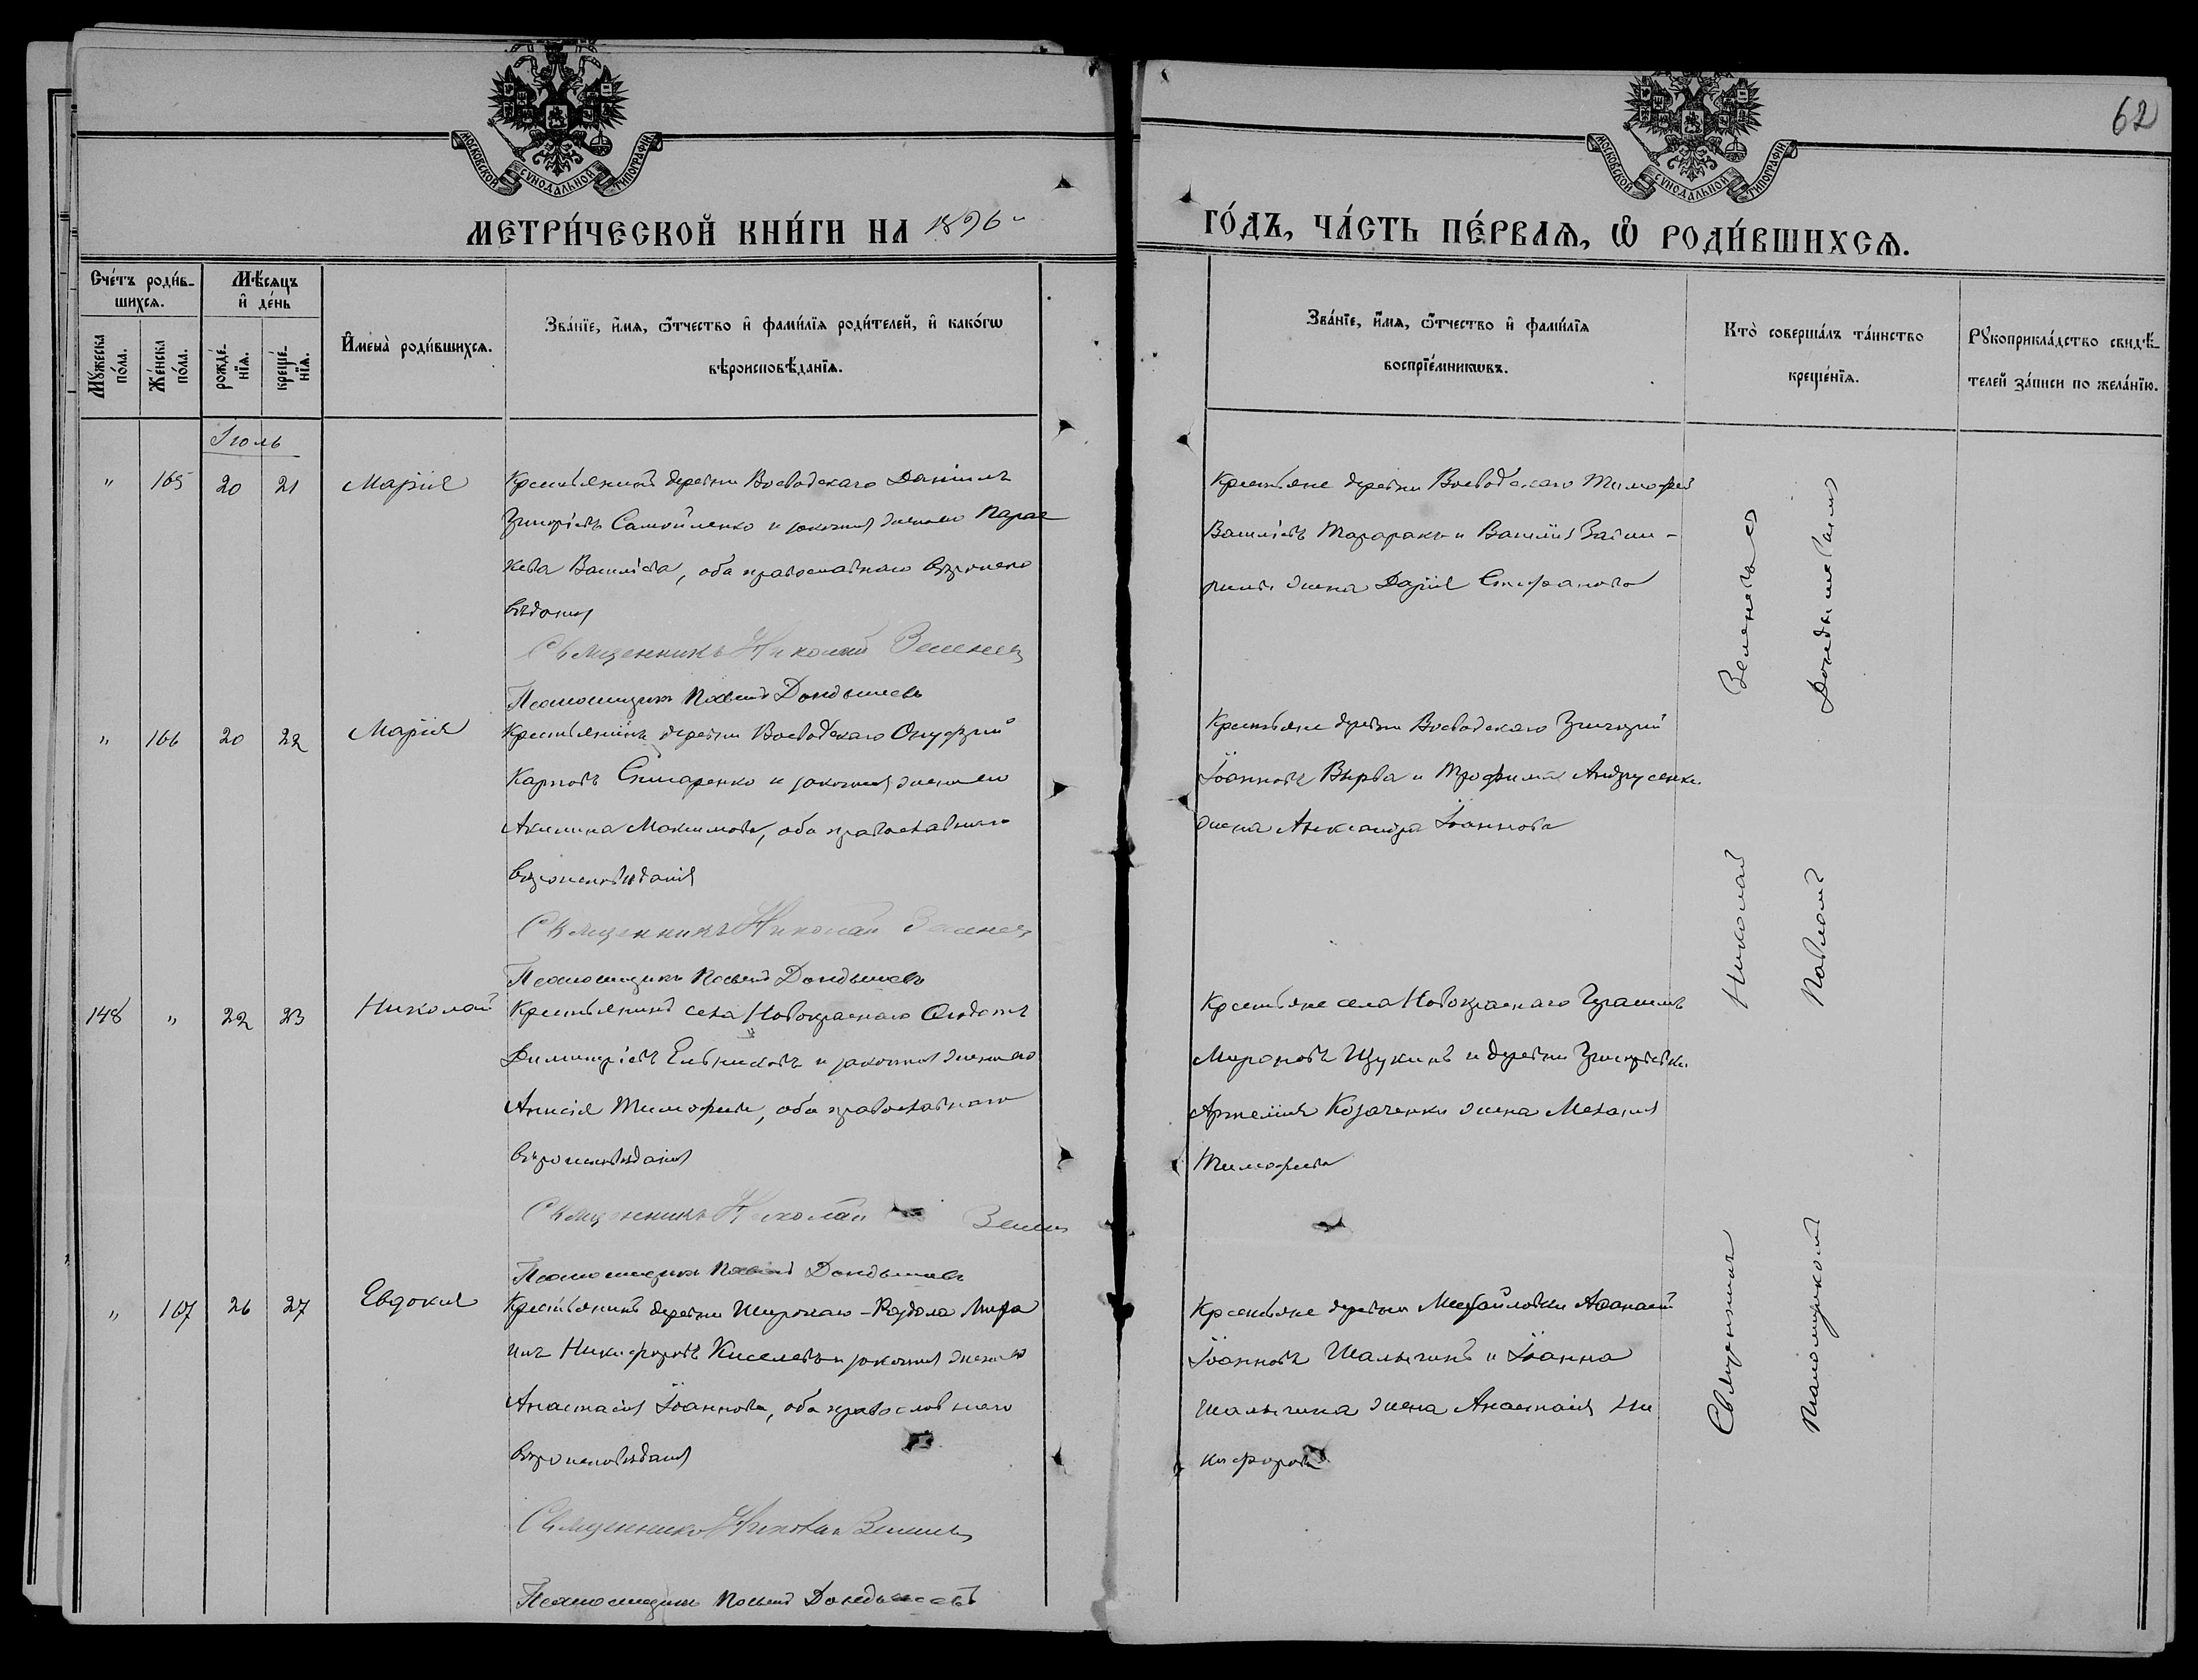 62
МОСКОВСКОЙ СѴНОДАЛЬНОЙ ТИПОГРАФІИ
МОСКОВСКОЙ СѴНОДАЛЬНОЙ ТИПОГРАФІИ
МЕТРИ́ЧЕСКОЙ КНИ́ГИ НА 1896
ГО́ДЪ, ЧА́СТЬ ПЕ́РВАЯ, Ѡ҆ РОДИ́ВШИХСЯ.
Сче́тъ роди́в-
шихся.
Му́жеска по́ла.
Же́нска по́ла.
Мѣ́сяцъ
и҆ де́нь
рожде́-
нїя.
креще́-
нїя.
И҆мена̀ роди́вшихся.
Зва́нїе, и҆́мя, ѻ҆́тчество и҆ фами́лїя роди́телей, и҆ како́гѡ
вѣроисповѣ́данїя.
Зва́нїе, и҆́мя, ѻ҆́тчество и҆ фами́лїя
воспрїе́мникѡвъ.
Кто̀ соверша́лъ та́инство
креще́нїя.
Рꙋкоприкла́дство свидѣ́-
телей за́писи по жела́нїю.
Іюль
" 165 20 21 Марія
Крестьянинъ деревни Воеводскаго Даніилъ
Григоріевъ Самойленко и законная жена его Парас
кева Василіева, оба православнаго вѣроиспо
вѣданія
Священникъ Николай Зеленев
Псаломщикъ Павелъ Дондышевъ
Крестьяне деревни Воеводскаго Тимофей
Василіевъ Тарарака и Василія
жена Дарія Стефанова
" 166 20 22 Марія
Крестьянинъ деревни Воеводскаго Онуфрій
Карповъ и законная жена его
Акилина Максимова, оба православнаго
вѣроисповѣданія
Священникъ Николай Зеленев
Псаломщикъ Павелъ Дондышевъ
Крестьяне деревни Воеводскаго Григорій
Іоанновъ Вырва и Трофима Андрусенка
жена Александра Іоаннова
148 " 22 23 Николай
Крестьянинъ села Новокраснаго Ѳеодотъ
Димитріевъ Ельниковъ и законная жена его
Анисія Тимофеева, оба православнаго
вѣроисповѣданія
Священникъ Николай Зелен
Псаломщикъ Павелъ Дондышевъ
Крестьяне села Новокраснаго Герасимъ
Мироновъ Щукинъ и деревни Григорьевки
Артемія Козаченка жена Меланія
Тимофеева
" 167 26 27 Евдокія
Крестьянинъ деревни Широкаго-Раздола
Никифоровъ Киселевъ и законная жена его
Анастасія Іоаннова, оба православнаго
вѣроисповѣданія
Священникъ Николай Зеленев
Псаломщикъ Павелъ Дондышевъ
Крестьяне деревни Михайловки Аѳанасій
Іоанновъ Шалыгинъ и Іоанна
Шалыгина жена Анастасія Ни
кифорова
Священникъ Николай Зеленевъ
Псаломщикомъ Павломъ Дондышевымъ